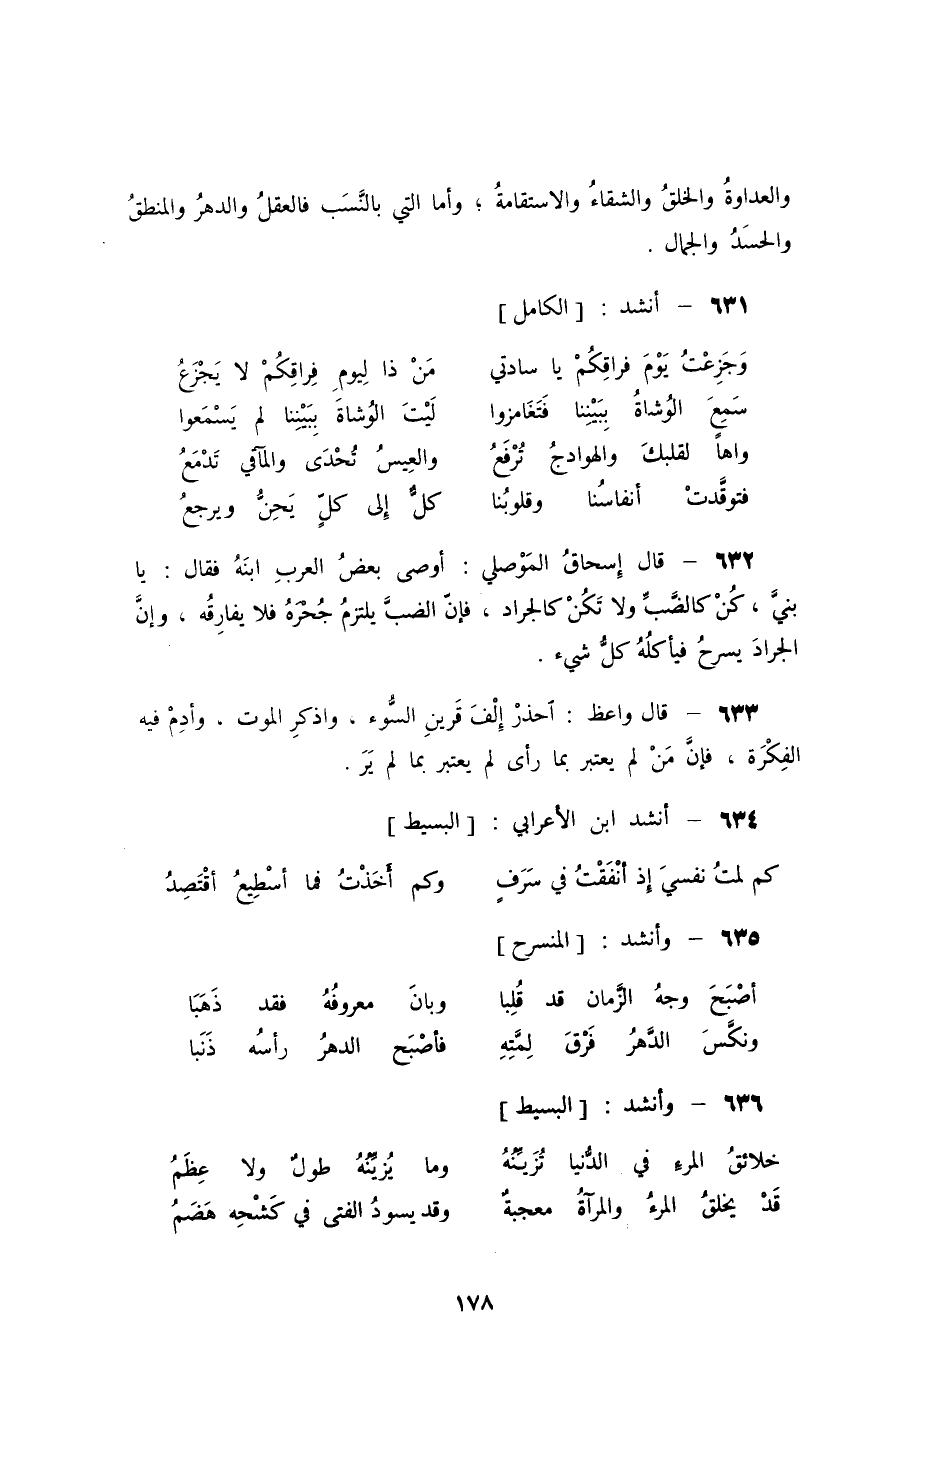 والعداوةُ والخلقُ والشقاءُ والاستقامةُ ؛ وأما التي بالنَّسَب فالعقلُ والدهرُ والمنطقُ
والحسَدُ والجمال .
٦٣١ – أنشد : [ الكامل ]
وَجَزِعْتُ يَوْمَ فراقِكُمْ يا سادتي مَنْ ذا لِيومِ فِراقِكُمْ لا يَجْزَعُ
سَمِعَ الوُشاةُ بِبَيْنِنا فَتَغَامزوا لَيْتَ الوُشاةَ بِبَيْنِنا لم يَسْمَعوا
واهاً لقلبكَ والهوادجُ تُرْفَعُ والعِيسُ تُحْدَى والمآقي تَدْمَعُ
فتوقَّدتْ أنفاسُنا وقلوبُنا كلٌّ إلى كلٍّ يَحِنُّ ويرجعُ
٦٣٢ – قال إسحاقُ المَوْصلي : أوصى بعضُ العربِ ابنَهُ فقال : يا
بنيَّ ، كُنْ كالضَّبِّ ولا تَكُنْ كالجراد ، فإنّ الضبَّ يلتزمُ جُحْرَهُ فلا يفارِقُه ، وإنَّ
الجرادَ يسرحُ فيأكلُهُ كلُّ شيء .
٦٣٣ – قال واعظ : آحذرْ إِلْفَ قَرينِ السُّوء ، واذكرِ الموت ، وأدِمْ فيه
الفِكْرَة ، فإنَّ مَنْ لم يعتبر بما رأى لم يعتبر بما لم يَرَ .
٦٣٤ – أنشد ابن الأعرابي : [ البسيط ]
كم لمتُ نفسيَ إذ أنْفَقْتُ في سَرَفٍ وكم أَخَذْتُ فما أسْطِيعُ أقْتَصِدُ
٦٣٥ – وأنشد : [ المنسرح ]
أصْبَحَ وجهُ الزَّمان قد قُلِبا وبانَ معروفُهُ فقد ذَهَبَا
ونكَّسَ الدَّهرُ فَرْقَ لِمَّتِهِ فأصْبَح الدهرُ رأسُه ذَنَبا
٦٣٦ – وأنشد : [ البسيط ]
خلائقُ المرءِ في الدُّنيا تُزَيِّنُهُ وما يُزيِّنُهُ طولٌ ولا عِظَمُ
قَدْ يخلقُ المرءُ والمرآةُ معجبةٌ وقد يسودُ الفتى في كَشْحِه هَضَمُ
١٧٨